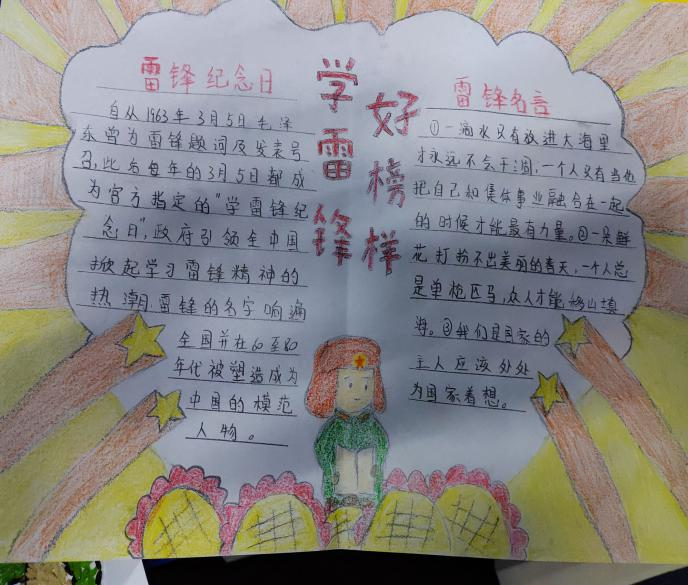 学雷锋
好榜样
雷锋纪念日
自从1963年3月5日毛泽
东曾为雷锋题词及发表号
召,此名每年的3月5日都成
为官方指定的"学雷锋纪
念日",政府引领全中国
掀起学习雷锋精神的
热潮,雷锋的名字响遍
全国并在60至80
年代被塑造成为
中国的模范
人物。
雷锋名言
①一滴水只有放进大海里
才永远不会干涸,一个人只有当他
把自己和集体事业融合在一起
的时候才能最有力量。②一朵鲜
花打扮不出美丽的春天,一个人总
是单枪匹马,众人才能移山填
海。③我们是国家的
主人应该处处
为国家着想。